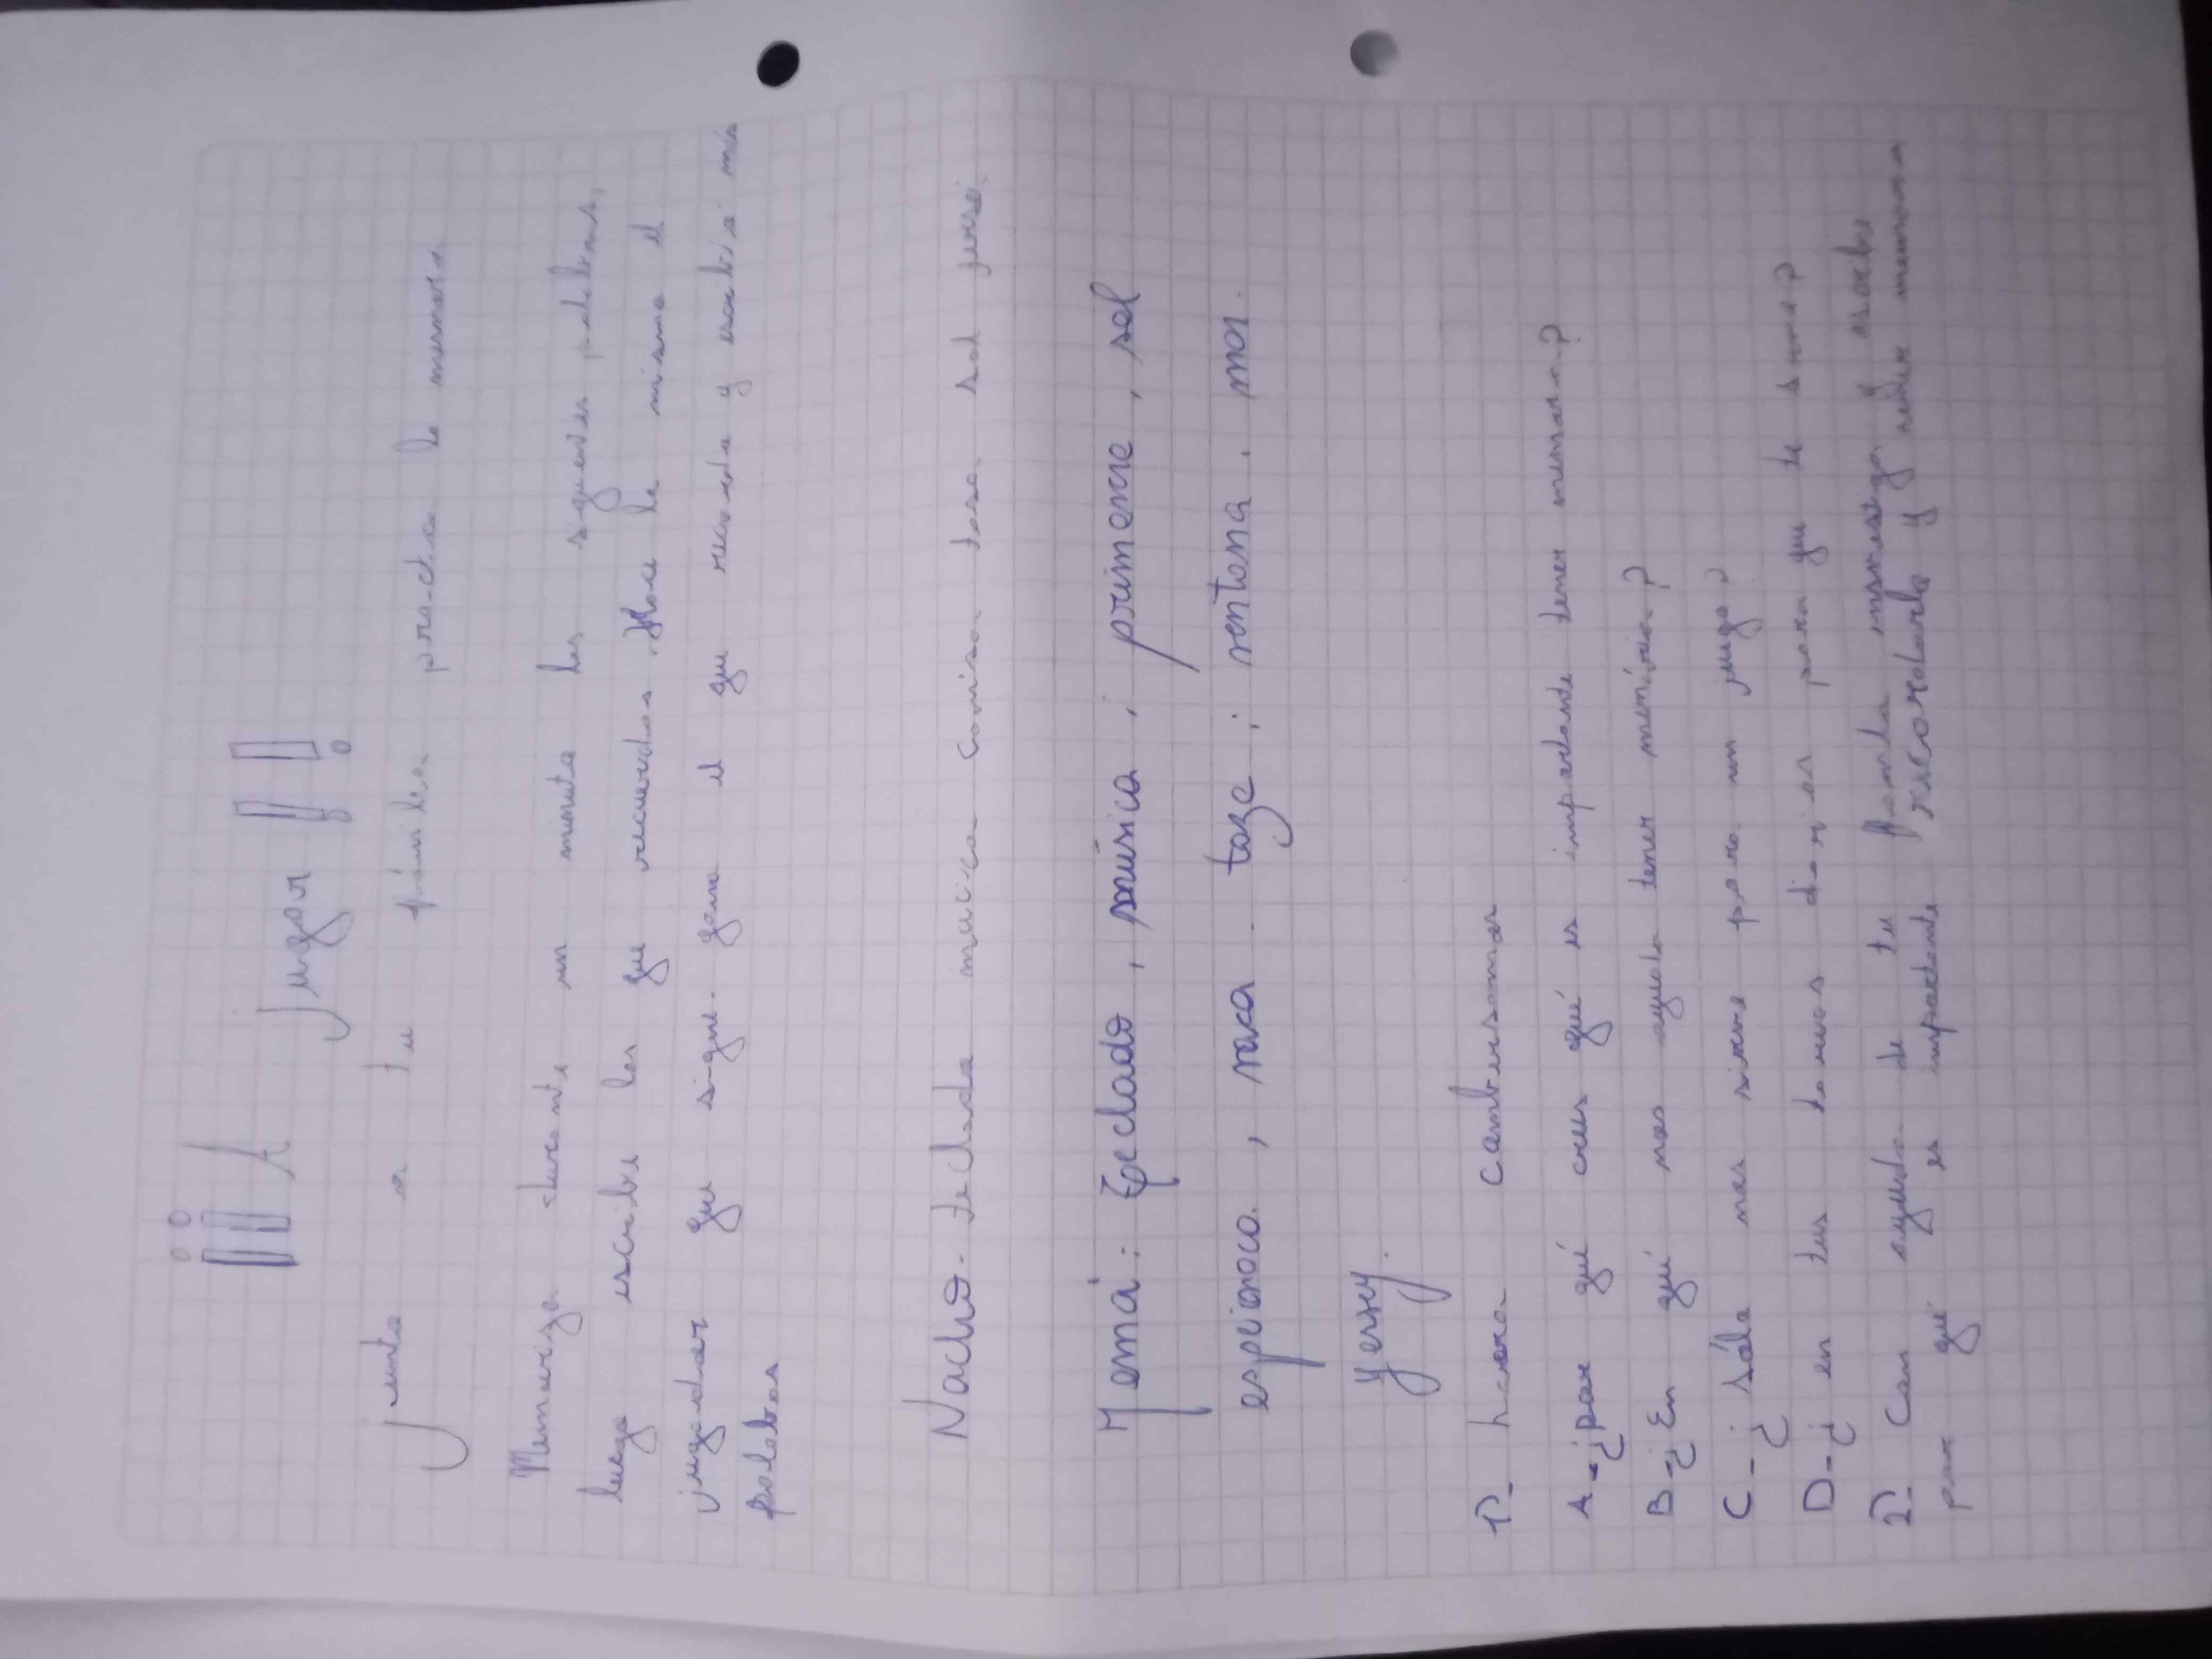 ¡¡A Jugar!!
Junto a tu fámilia practica la memoria
Memoriza durante un minuto las siguientes palabras,
luego escribe las que recuerdas. Hace lo mismo el
jugador que sigue. gana el que recuerda y escribió más
palabras
Nacho- teclado música camisa taza sol jersei
Mená: Teclado, música; primenre, sol
espionoca, vaca. taza; ventana, mar.
yersey.
1)- hara cambersamos
A-¿por qué crees qué es importante tener memoria?
B-¿En qué nos ayuda tener memória?
C-¿Sólo nos sirve para un juego?
D-¿en tus tareas diarias para que te sirve?
2)- Con ayuda de tu familia investiga y escribe
por qué es importante recordarla y tener memoria